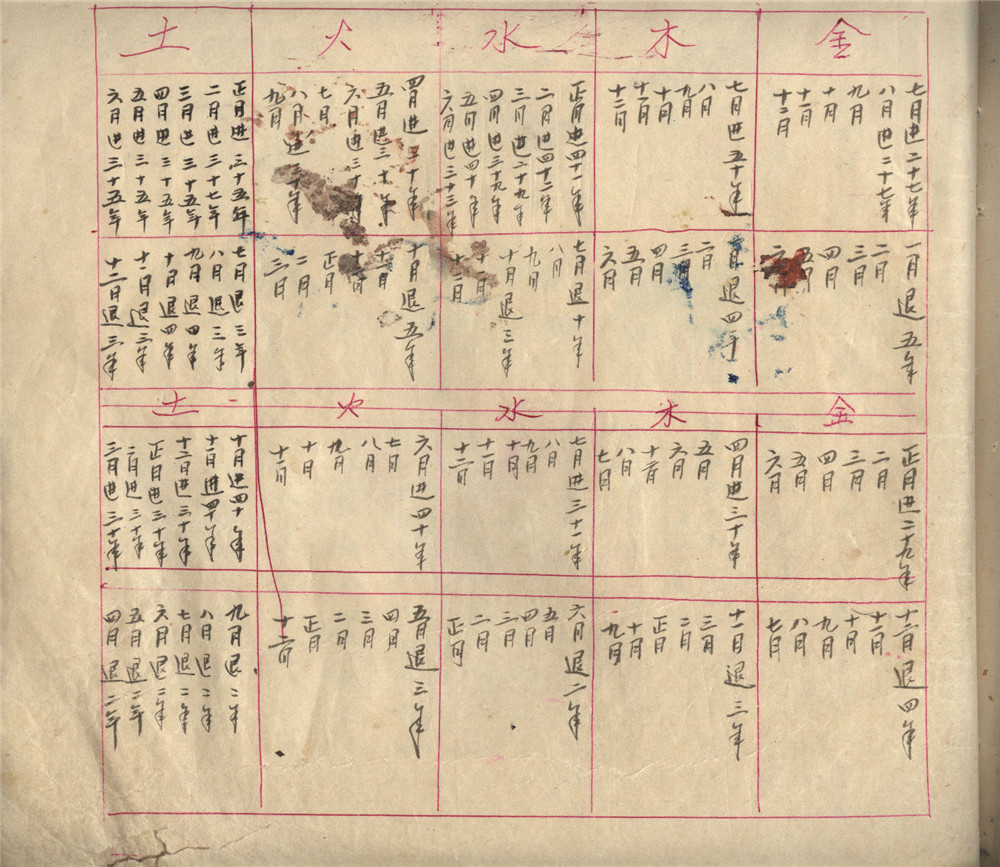 金
木
水
火
土
七月进二十七年
八月进二十七年
九月
十月
十一月
十二月
七月进五十年
八月
九月
十月
十一月
十二月
正月进四十一年
二月进四十二年
三月进二十九年
四月进三十九年
五月进四十年
六月进三十三年
四月进三十年
五月进三十年
六月进三十年
七月
八月进三十年
九月
正月进三十五年
二月进三十七年
三月进三十五年
四月进三十五年
五月进三十五年
六月进三十五年
一月退五年
二月
三月
四月
五月
六月
月退四年
二月
三月
四月
五月
六月
七月退十年
八月
九月
十月退三年
十一月
十二月
十月退五年
十一月
十二月
正月
二月
三月
七月退三年
八月退三年
九月退四年
十月退四年
十一月退三年
十二月退三年
金
木
水
火
土
正月进二十九年
二月
三月
四月
五月
六月
四月进三十年
五月
六月
十二月
八月
七月
七月进三十一年
八月
九月
十月
十一月
十二月
六月进四十年
七月
八月
九月
十月
十一月
十月进四十年
十一月进四十年
十二月进三十年
正月进三十年
二月进三十年
三月进三十年
十二月退四年
十一月
十月
九月
八月
七月
十一月退三年
三月
二月
正月
十月
九月
六月退二年
五月
四月
三月
二月
正月
五月退三年
四月
三月
二月
正月
十二月
九月退二年
八月退二年
七月退二年
六月退二年
五月退二年
四月退二年